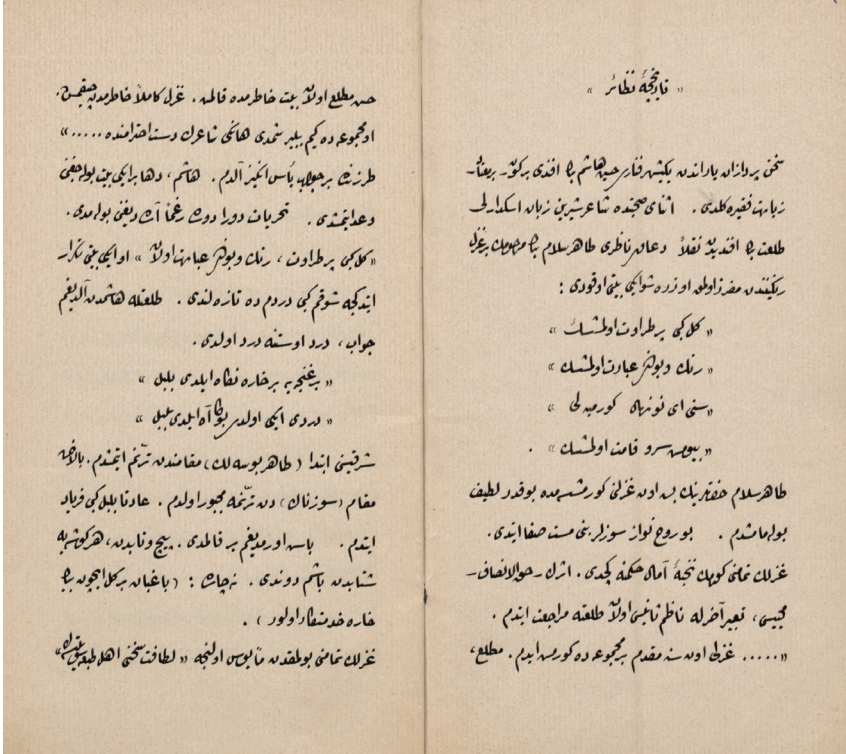 « قاریخیهٔ نظائر »
سخن پردازان یاراندن یکیشهرفناری حسین هاشم بك افندی برکون بریعنا
زیارت فقیره کلدی . اثنای صحبتده شاعر شیرین زبان اسکدارلی
طلعت بك افندیدن نقلاً دعاوی ناظری طاهر سلام بك مرحومك برغزل
رنکیندن مفرز اولمق اوزره شو ایکی بیتی اوقودی :
« کل کبی پر طراوت اولمشسك »
« رنك و بودن عبارت اولمشسك »
« سنی ای نونهال کورمیه لی »
« بیوممش سرو قامت اولمشسك » .
طاهر سلام حضرتلرینك بسش اون غزلنی کورمشسه مده بوقدر لطیف
بوله مامشدم . بو روح نواز سوزلر بنی مست صفا ایتدی .
غزلك تمامنی کورمك نتیجهٔ آمال حکمنه کچدی . اثرك - حق الانصاف -
محییسی ، تعبیر آخرله ناظم ثانیسی اولان طلعته مراجعت ایتدم .
« ..... غزلی اون سنه مقدم بر مجموعه ده کورمش ایدم . مطلع ،
حسن مطلع اولان بیت خاطرمده قالمش . غزل کاملاً خاطرمدن چیقمش .
او مجموعه ده کیم بیلیر شمدی هانکی شاعرك دست احترامنده ..... »
طرزنده بر جواب یأس انکیز آلدم . هاشم ، دها بر ایکی بیت بوله جغنی
وعد ایتمشدی . تحریات دورادوره رغماً آرادیغنی بوله مدی .
« کل کبی پر طراوت ، رنك و بودن عبارت اولان » او ایکی بیتی تکرار
ایتدکجه شوقم کبی دردم ده تازه لندی . طلعتله هاشمدن آلدیغم
جواب ، درد اوستنه درد اولدی .
« بر غنچه یه بر خاره نکاه ایلدی بلبل »
« دردی ایکی اولدی بوکا آه ایلدی بلبل »
شرقیسنی ابتدا ( طاهر بوسه لك ) مقامندن ترنم ایتمشدم . بالآخره
مقام ( سوزناك ) دن ترنمه مجبور اولدم . عادتا بلبل کبی فریاد
ایتدم . باش اورمدیغم یر قالمدی . پیچ و تابدن ، هر کوشه یه
شتابدن باشم دوندی . نه چاره : ( باغبان بر کل ایچون بیك
خاره خدمتکار اولور ) .
غزلك تمامنی بولمقدن مأیوس اولنجه « لطافت سخنی اهل طبعه